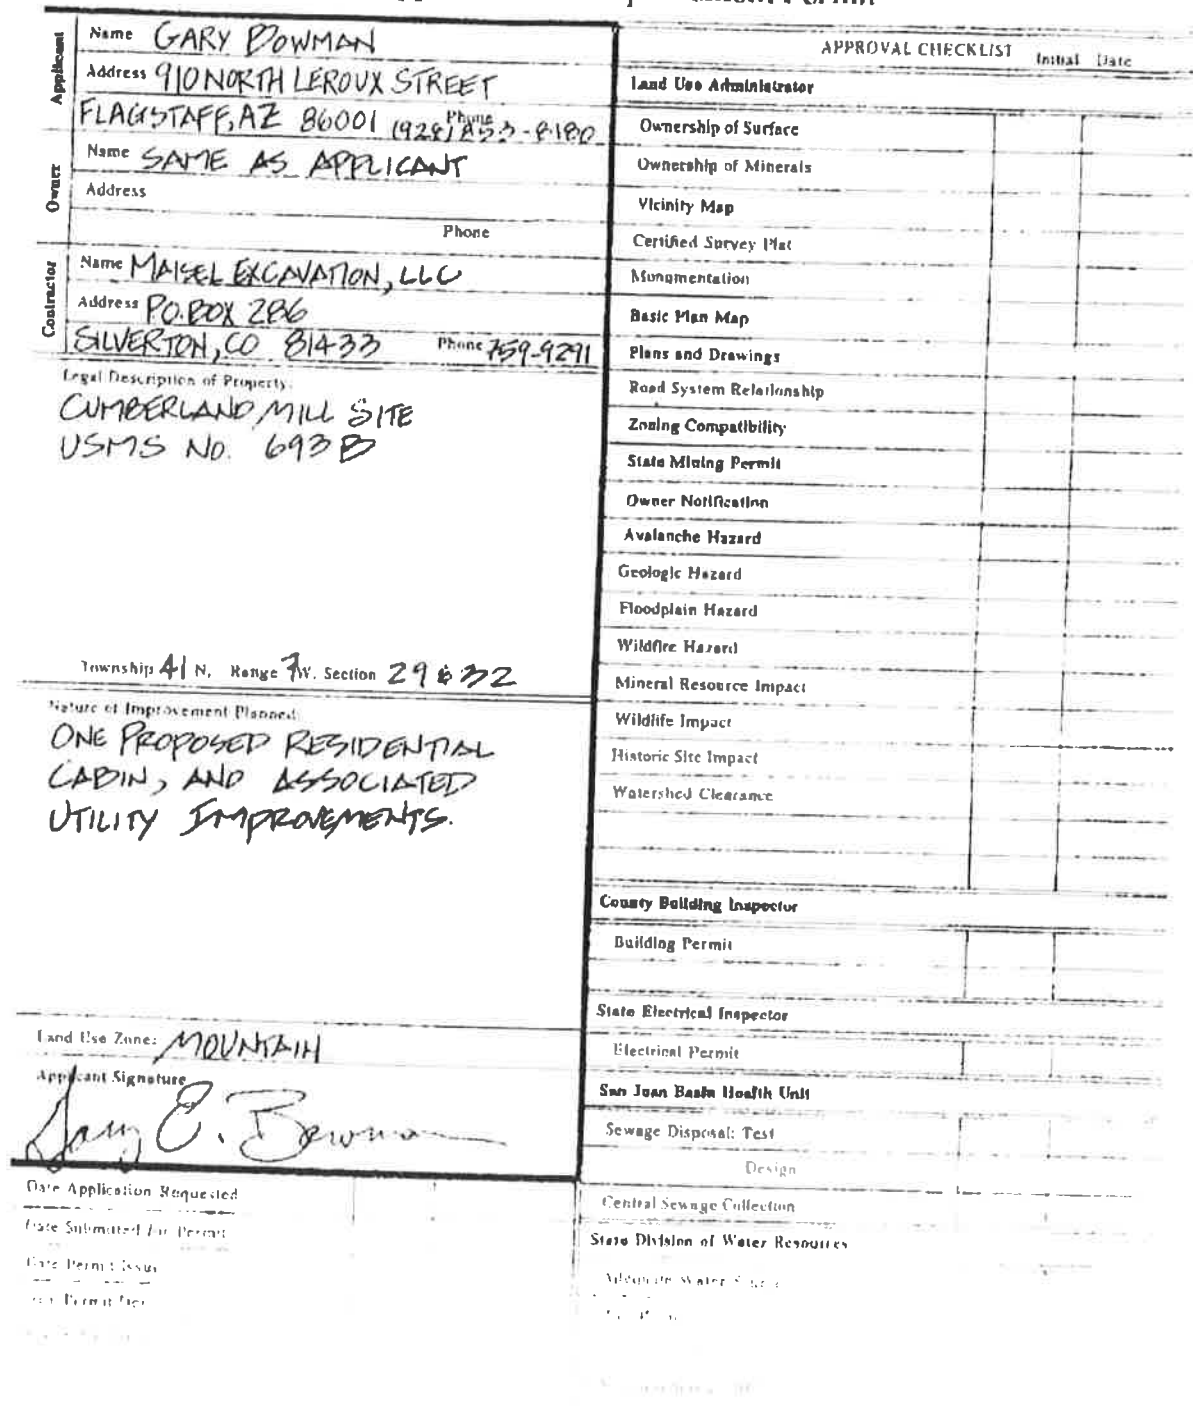 Applicant
Name GARY BOWMAN
Address 910 NORTH LEROUX STREET
FLAGSTAFF, AZ 86001 Phone (928) 853-8180
Owner
Name SAME AS APPLICANT
Address
Phone
Contractor
Name MAISEL EXCAVATION, LLC
Address P.O. BOX 286
SILVERTON, CO 81433 Phone 759-9291
Legal Description of Property:
CUMBERLAND MILL SITE
USMS NO. 693 B
Township 41 N. Range 7 W. Section 29 & 32
Nature of Improvement Planned:
ONE PROPOSED RESIDENTIAL
CABIN, AND ASSOCIATED
UTILITY IMPROVEMENTS.
Land Use Zone: MOUNTAIN
Applicant Signature
Gary E. Bowman
Date Application Requested
Date Submitted for Permit
Date Permit Issued
APPROVAL CHECKLIST Initial Date
Land Use Administrator
Ownership of Surface
Ownership of Minerals
Vicinity Map
Certified Survey Plat
Monumentation
Basic Plan Map
Plans and Drawings
Road System Relationship
Zoning Compatibility
State Mining Permit
Owner Notification
Avalanche Hazard
Geologic Hazard
Floodplain Hazard
Wildfire Hazard
Mineral Resource Impact
Wildlife Impact
Historic Site Impact
Watershed Clearance
County Building Inspector
Building Permit
State Electrical Inspector
Electrical Permit
San Juan Basin Health Unit
Sewage Disposal: Test
Design
Central Sewage Collection
State Division of Water Resources
Adequate Water